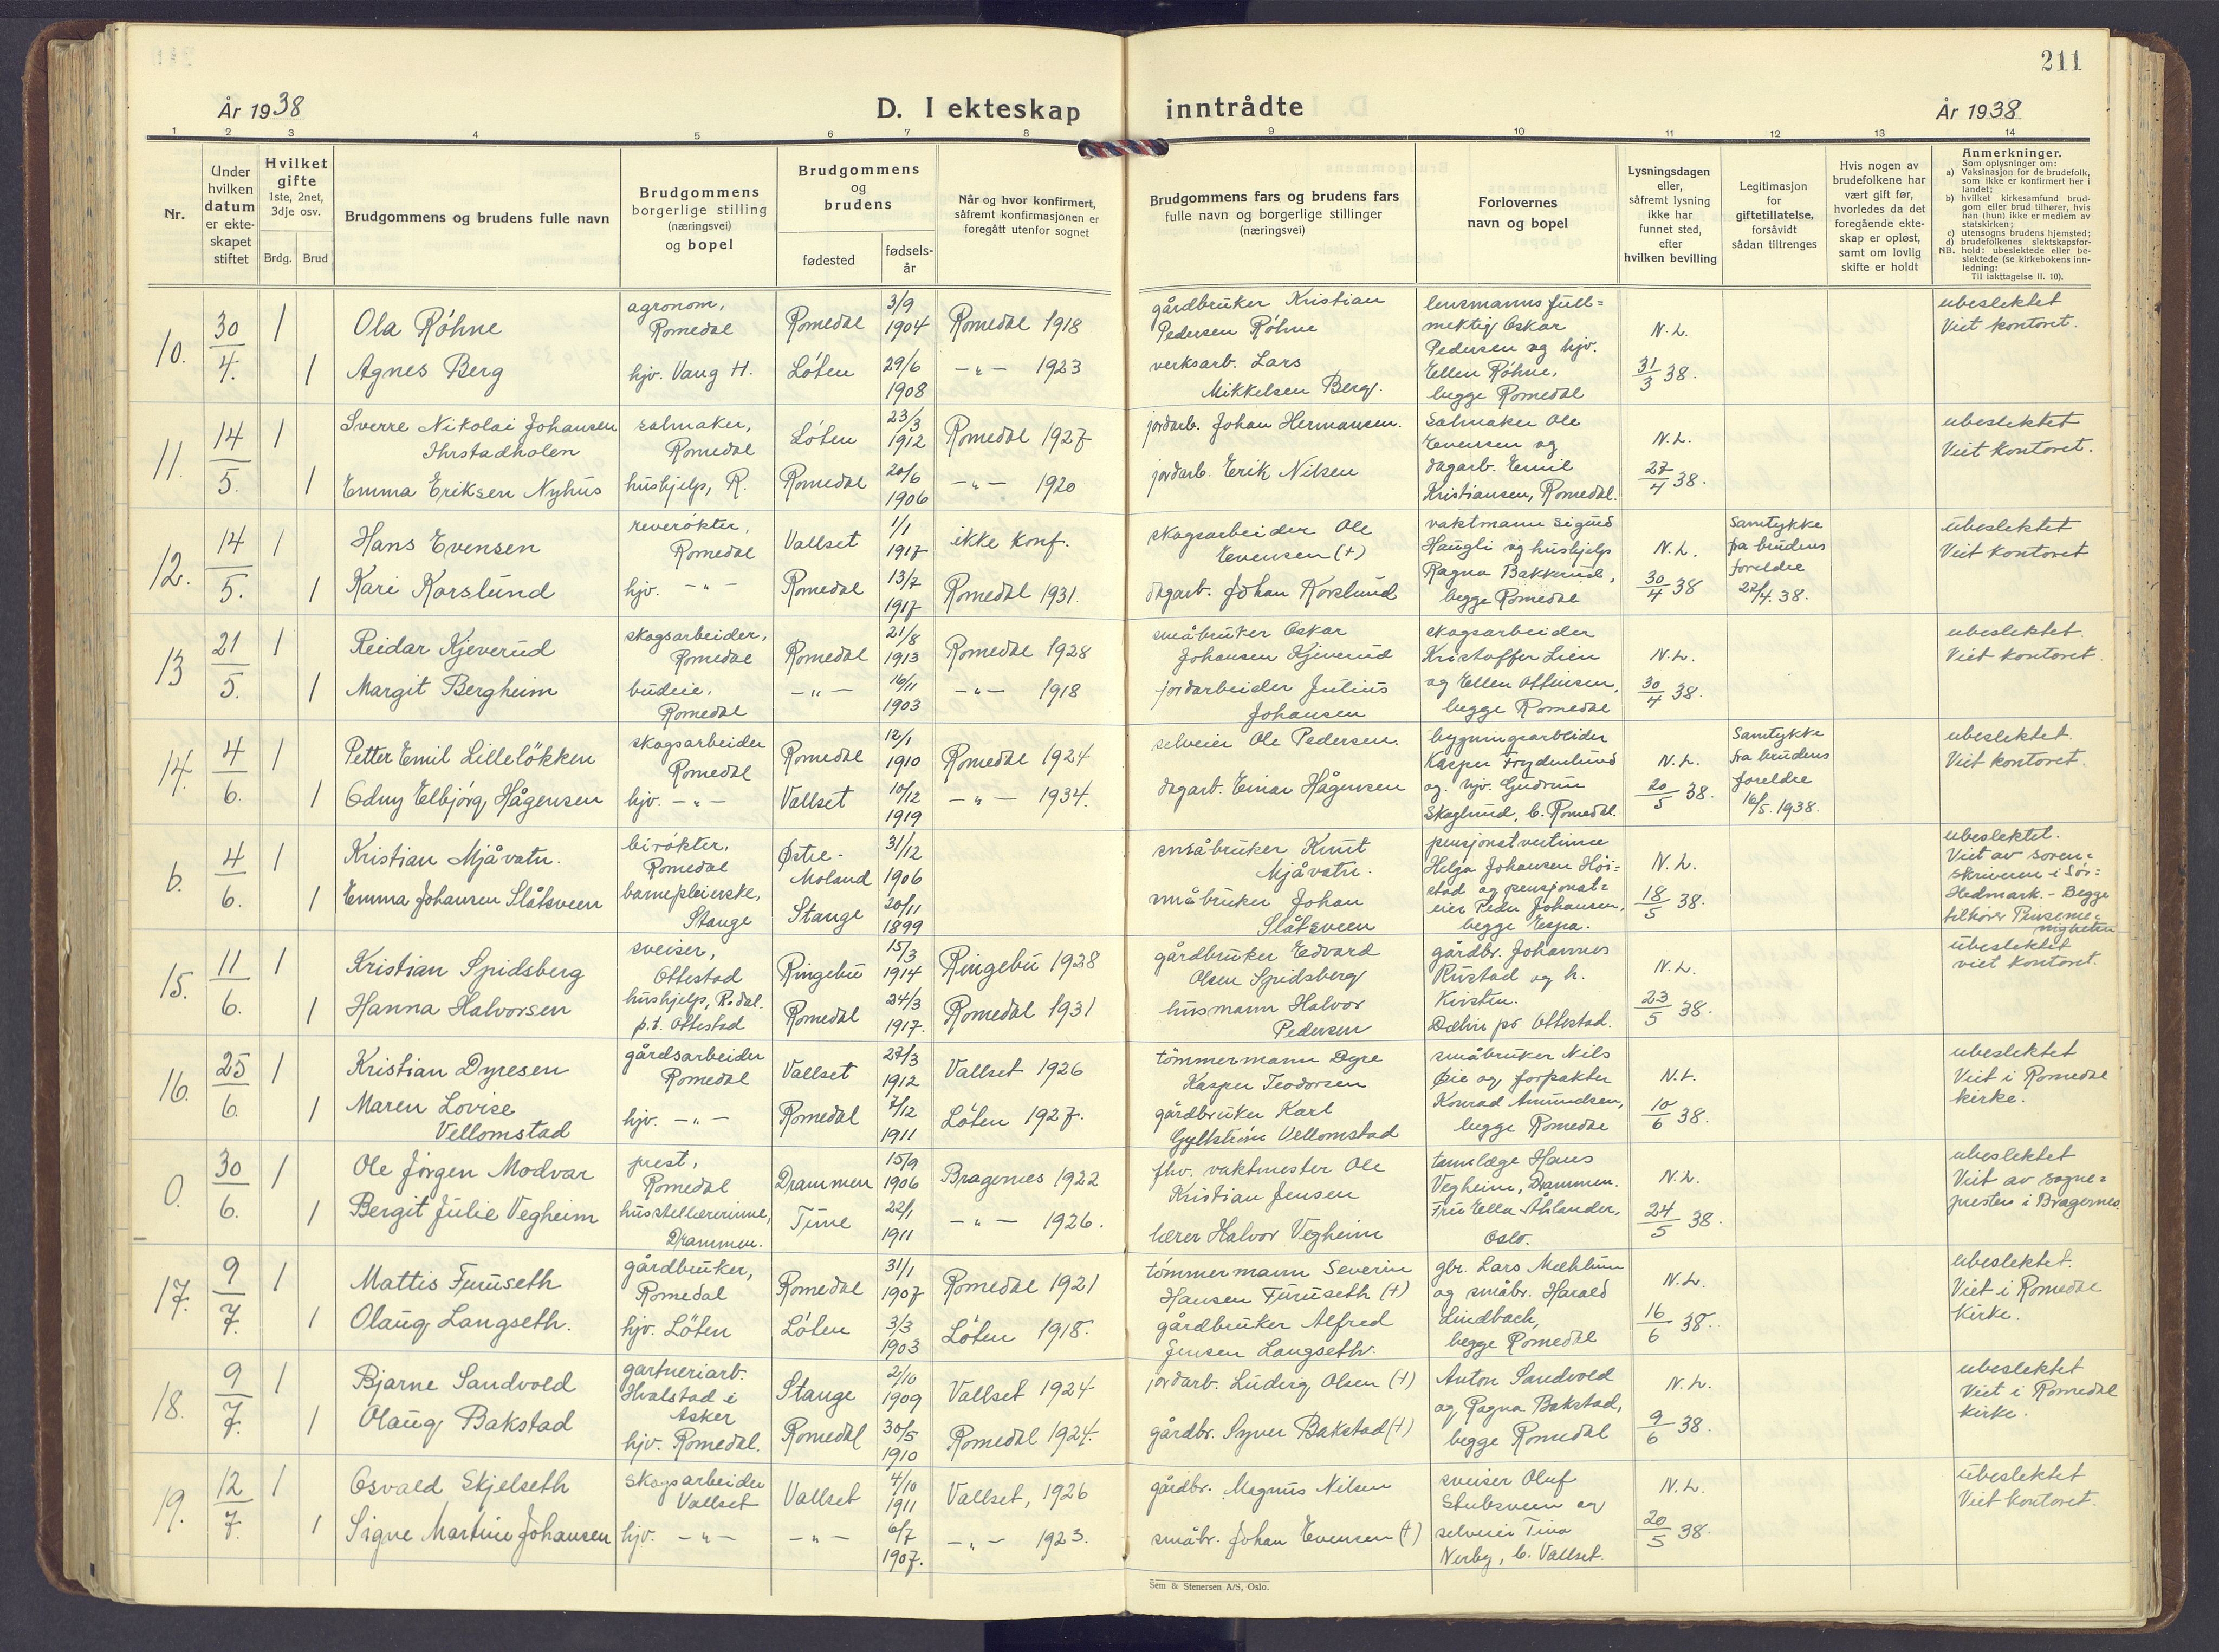 211
År 1938
D. I ekteskap inntrådte
År 1938
1 2 3 4 5 6 7 8 9 10 11 12 13 14
Nr.
Under
hvilken
datum
er ekte-
skapet
stiftet
Hvilket
gifte
1ste, 2net,
3dje osv.
Brdg. Brud
Brudgommens og brudens fulle navn
Brudgommens
borgerlige stilling
(næringsvei)
og bopel
Brudgommens
og
brudens
fødested
fødsels-
år
Når og hvor konfirmert,
såfremt konfirmasjonen er
foregått utenfor sognet
Brudgommens fars og brudens fars
fulle navn og borgerlige stillinger
(næringsvei)
Forlovernes
navn og bopel
Lysningsdagen
eller,
såfremt lysning
ikke har
funnet sted,
efter
hvilken bevilling
Legitimasjon
for
giftetillatelse,
forsåvidt
sådan tiltrenges
Hvis nogen av
brudefolkene har
vært gift før,
hvorledes da det
foregående ekte-
skap er opløst,
samt om lovlig
skifte er holdt
Anmerkninger.
Som oplysninger om:
a) Vaksinasjon for de brudefolk,
som ikke er konfirmert her i
landet;
b) hvilket kirkesamfund brud-
gom eller brud tilhører, hvis
han (hun) ikke er medlem av
statskirken;
c) utensogns brudens hjemsted;
d) brudefolkenes slektskapsfor-
NB. hold: ubeslektede eller be-
slektede (se kirkebokens inn-
ledning:
Til iakttagelse II. 10).
10.
30/4.
1
Ola Røhne
agronom,
Romedal
Romedal
3/9
1904
Romedal 1918
gårdbruker Kristian
Pedersen Røhne
1
Agnes Berg
hjv. Vang H.
Løten
29/6
1908
-"- 1923
verksarb. Lars
Mikkelsen Berg.
lensmanns full=
mektig Oskar
Pedersen og hjv.
Ellen Røhne,
begge Romedal
N.L.
31/3 38.
ubeslektet
Viet kontoret.
11.
14/5.
1
Sverre Nikolai Johansen
Ihrstadholen
salmaker,
Romedal
Løten
23/3
1912
Romedal 1927
jordarb. Johan Hermansen.
1
Emma Eriksen Nyhus
hushjelp, R.
Romedal
20/6
1906
-"- 1920
jordarb. Erik Nilsen
Salmaker Ole
Evensen og
dagarb. Emil
Kristiansen, Romedal.
N.L.
27/4 38.
ubeslektet
Viet kontoret.
12.
14/5.
1
Hans Evensen
reverøkter,
Romedal
Vallset
1/1
1917
ikke konf.
skogsarbeider Ole
Evensen (+)
1
Kari Korslund
hjv. -"-
Romedal
13/7
1917
Romedal 1931.
dagarb. Johan Korslund
vaktmann Sigurd
Haugli og hushjelp
Ragna Bakkerud,
begge Romedal
N.L.
30/4 38
Samtykke
fra brudens
foreldre
27/4. 38.
ubeslektet
Viet kontoret
13
21/5.
1
Reidar Kjeverud
skogsarbeider,
Romedal
Romedal
21/8
1913
Romedal 1928
småbruker Oskar
Johansen Kjeverud
1
Margit Bergheim
budeie,
Romedal
-"-
16/11
1903
-"- 1918
jordarbeider Julius
Johansen
skogsarbeider
Kristoffer Lien
og Ellen Ottensen,
begge Romedal
N.L.
30/4 38.
ubeslektet.
Viet kontoret.
14.
4/6.
1
Petter Emil Lilleløkken
skogsarbeider
Romedal
Romedal
12/1
1910
Romedal 1924
selveier Ole Pedersen.
1
Odny Elbjørg Hågensen
hjv. -"-
Vallset
10/12
1919
-"- 1934.
dagarb. Einar Hågensen
bygningsarbeider
Kasper Frydenlund
og hjv. Gudrun
Skoglund, b. Romedal.
N.L.
20/5 38.
Samtykke
fra brudens
foreldre
16/5. 1938.
ubeslektet.
Viet kontoret.
b.
4/6.
1
Kristian Mjåvatn.
birøkter,
Romedal
Østre-
Moland
31/12
1906
småbruker Knut
Mjåvatn.
1
Emma Johansen Slåtsveen
barnepleierske,
Stange
Stange
20/11
1899
småbruker Johan
Slåtsveen
pensjonatvertinne
Helga Johansen Høi=
stad og pensjonat=
eier Peder Johansen,
begge Espa.
N.L.
18/5 38.
ubeslektet.
Viet av soren=
skriveren i Sør=
Hedmark. - Begge
tilhører Pinseme=
nigheten
15.
11/6.
1
Kristian Spidsberg
sveiser,
Ottestad
Ringebu
15/3
1914
Ringebu 1928
gårdbruker Edvard
Olsen Spidsberg
1
Hanna Halvorsen
hushjelp, R.dal.
p.t. Ottestad
Romedal
24/3
1917.
Romedal 1931
husmann Halvor
Pedersen
gårdbr. Johannes
Rustad og h.
Kirsten.
Dælin pr Ottestad.
N.L.
23/5 38.
ubeslektet
viet kontoret.
16.
25/6.
1
Kristian Dyresen
gårdsarbeider
Romedal
Vallset
27/3
1912
Vallset 1926
tømmermann Dyre
Kasper Teodorsen
1
Maren Lovise
Vellomstad
hjv. -"-
Romedal
7/12
1911
Løten 1927.
gårdbruker Karl
Gyllstrøm Vellomstad
småbruker Nils
Øie og forpakter
Konrad Amundsen,
begge Romedal
N.L.
10/6 38.
ubeslektet
Viet i Romedal
kirke.
0.
30/6.
1
Ole Jørgen Modvar
prest,
Romedal
Drammen
15/9
1906
Bragernes 1922
fhv. vaktmester Ole
Kristian Jensen
1
Bergit Julie Vegheim
husstellærerinne,
Drammen.
Time
22/1
1911
-"- 1926.
lærer Halvor Vegheim
tannlæge Hans
Vegheim, Drammen.
Fru Ella Åhlander,
Oslo.
N.L.
24/5 38.
ubeslektet
Viet av sogne=
presten i Bragernes.
17.
9/7.
1
Mattis Furuseth
gårdbruker,
Romedal
Romedal
31/1
1907
Romedal 1921
tømmermann Severin
Hansen Furuseth (+)
1
Olaug Langseth.
hjv. Løten
Løten
3/3
1903
Løten 1918.
gårdbruker Alfred
Jensen Langseth.
gbr. Lars Mæhlum
og småbr. Harald
Lindbach,
begge Romedal
N.L.
16/6 38.
ubeslektet.
Viet i Romedal
Kirke.
18.
9/7.
1
Bjarne Sandvold
gartneriarb.
Hvalstad i
Asker
Stange
2/10
1909
Vallset 1924
jordarb. Ludvig Olsen (+)
1
Olaug Bakstad
hjv. Romedal.
Romedal
30/5
1910
Romedal 1924.
gårdbr. Syver Bakstad (+)
Anton Sandvold
og Ragna Bakstad,
begge Romedal
N.L.
9/6 38.
ubeslektet
Viet i Romedal
kirke.
19.
12/7.
1
Osvald Skjelseth
Skogsarbeider
Vallset
Vallset
4/10
1911
Vallset, 1926
gårdbr. Magnus Nilsen
1
Signe Martine Johansen
hjv. -"-
-"-
6/7
1907.
-"- 1923.
småbr. Johan Evensen (+)
sveiser Oluf
Stubsveen og
selveier Tina
Nerby, b. Vallset.
N.L.
20/5 38.
ubeslektet
Viet kontoret.
Sem & Stenersen A/S, Oslo.